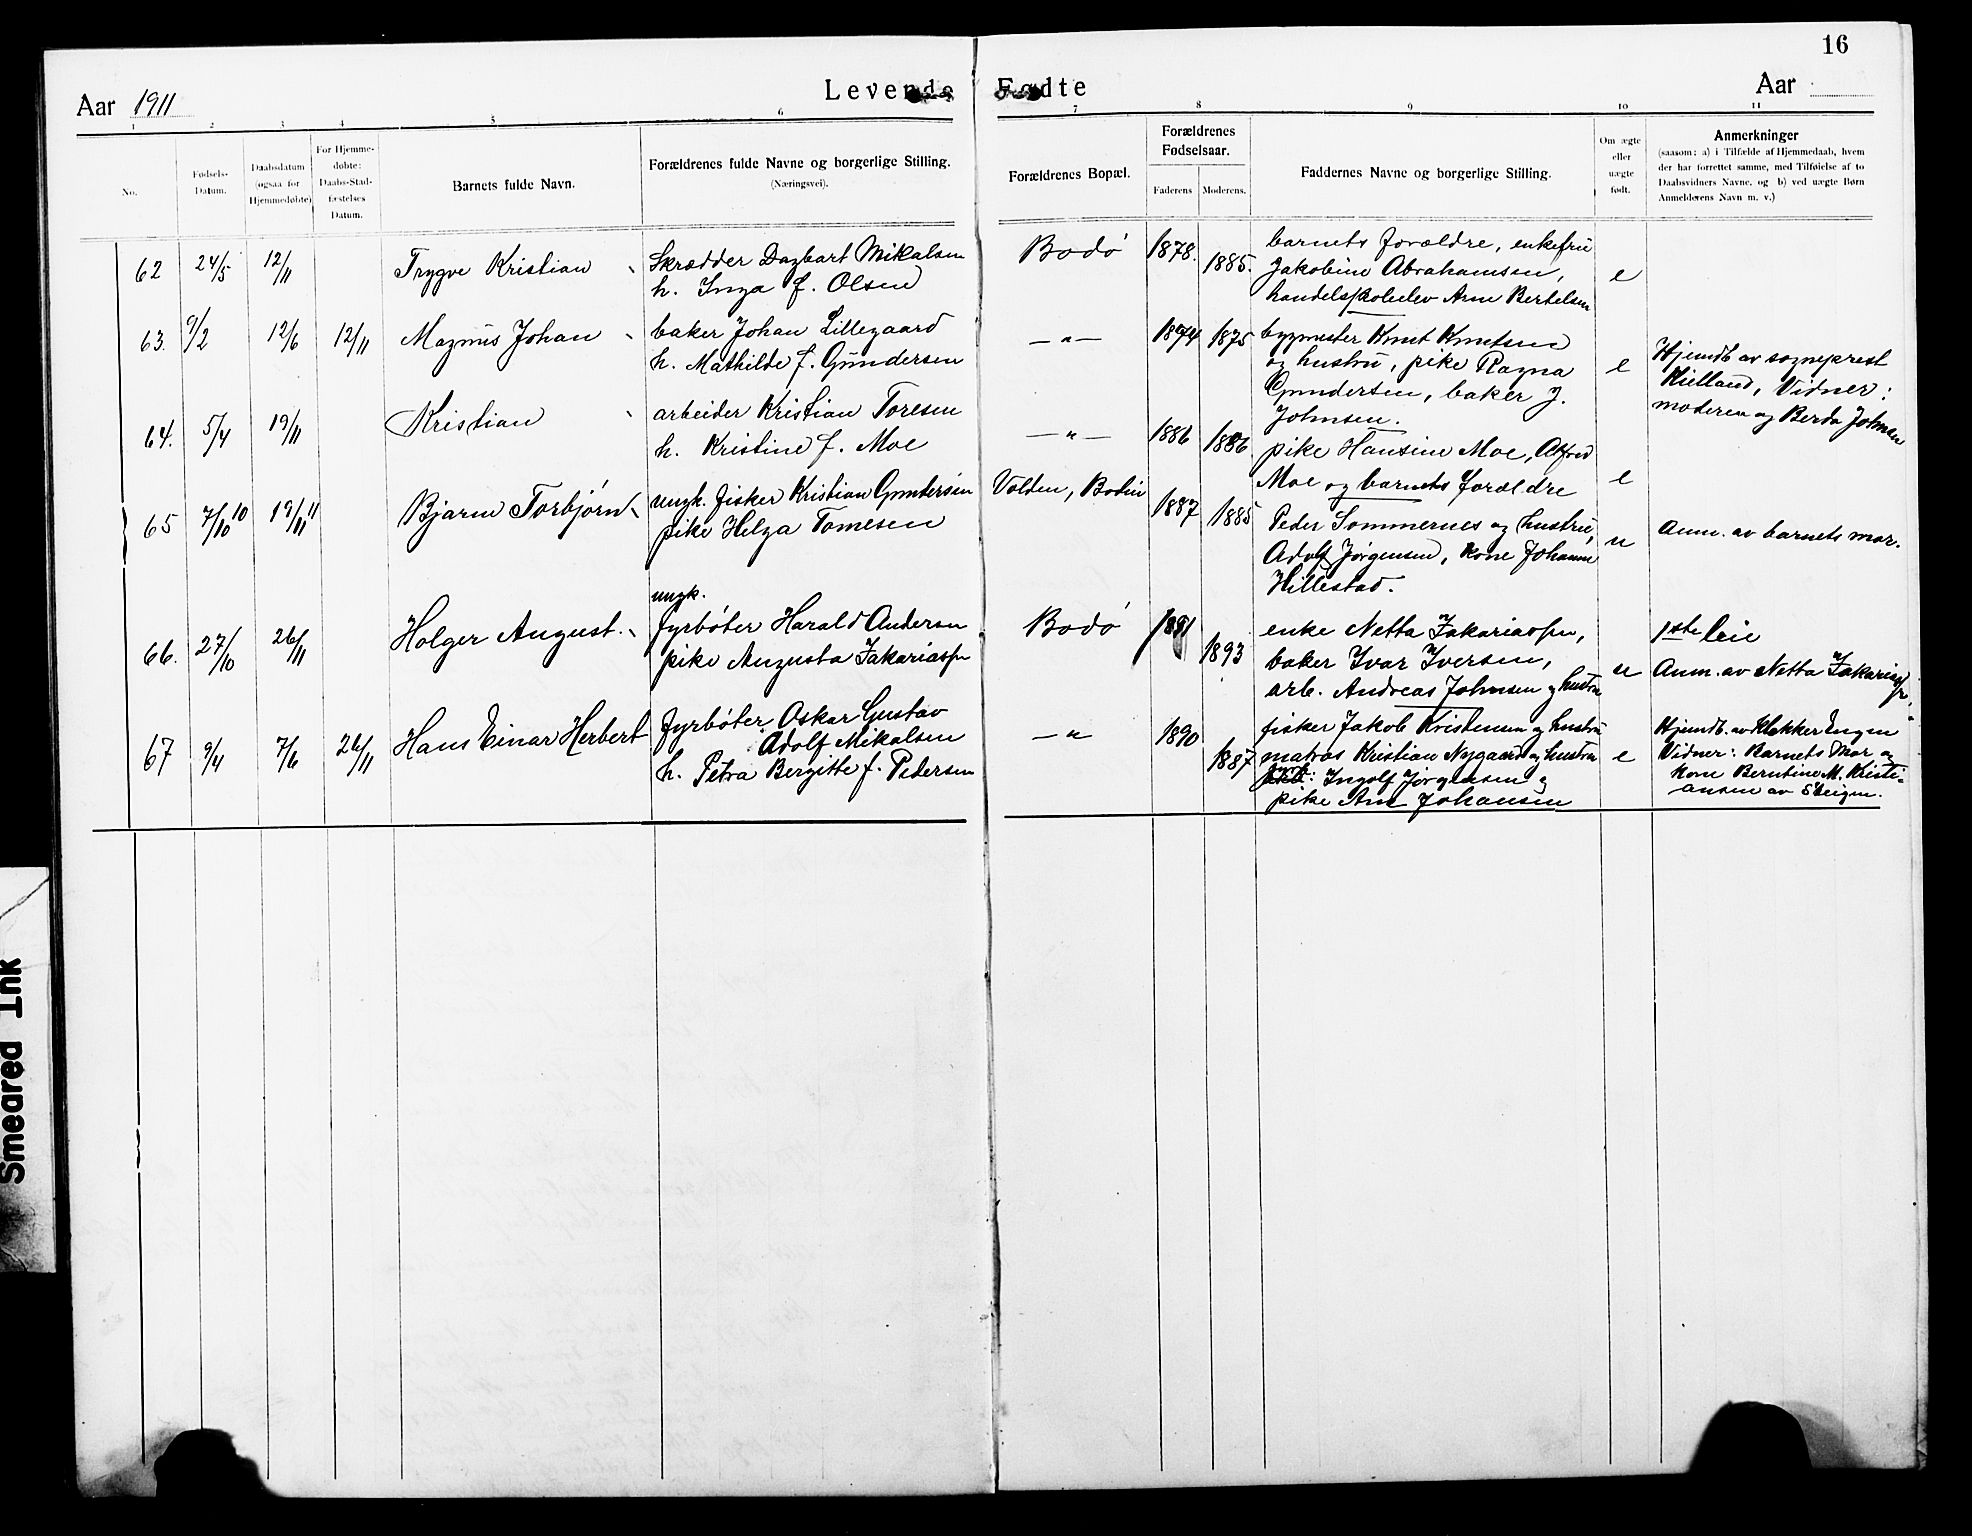 16
Levende Fødte
Aar 1911
Aar
1 2 3 4 5 6 7 8 9 10 11
No.
Fødsels-
Datum.
Daabsdatum
(ogsaa for
Hjemmedøbte)
For Hjemme-
døbte:
Daabs-Stad-
fæstelses
Datum.
Barnets fulde Navn.
Forældrenes fulde Navne og borgerlige Stilling.
(Næringsvei).
Forældrenes Bopæl.
Forældrenes
Fødselsaar.
Faderens
Moderens.
Faddernes Navne og borgerlige Stilling.
Om ægte
eller
uægte
født.
Anmerkninger
(saasom: a) i Tilfælde af Hjemmedaab, hvem
der har forrettet samme, med Tilføielse af to
Daabsvidners Navne, og b) ved uægte Børn
Anmelderens Navn m. v.)
62 24/5 12/11
Trygve Kristian
Skrædder Dagbart Mikalsen
h. Inga f. Olsen
Bodø 1878. 1885.
barnets forældre, enkefru
Jakobine Abrahamsen,
handelsskoleelev Arne Bertelsen
e
63. 9/2 12/6 12/11
Magnus Johan
baker Johan Lillegaard
h. Mathilde f. Gundersen
— " — 1874 1875
bygmester Knut Knutsen
og hustru, pike Ragna
Gundersen, baker J.
Johnsen.
e
Hjemdt av sogneprest
Kielland, Vidner:
moderen og Berda Johnsen
64. 5/4 19/11
Kristian
arbeider Kristian Toresen
h. Kristine f. Moe
— " — 1886 1886
pike Hansine Moe, Alfred
Moe og barnets forældre
e
65 7/10 10 19/11 11
Bjarne Torbjørn
ungk. fisker Kristian Gundersen
pike Helga Tomesen
Volden, Bodin 1887 1885
Peder Sommernes og hustru,
Adolf Jørgensen, kone Johanne
Hillestad.
u
Anm. av barnets mor.
66. 27/10 26/11
Holger August.
ungk.
fyrbøter Harald Andersen
pike Augusta Zakariassen
Bodø 1891 1893
enke Netta Zakariassen,
baker Ivar Iversen,
arb. Andreas Johnsen og hustru
u
1ste leie
Anm. av Netta Zakariassen
67 9/4 7/6 26/11
Hans Einar Herbert
fyrbøter Oskar Gustav
Adolf Mikalsen
h. Petra Bergitte f. Pedersen
— " — 1890 1887
fisker Jakob Kristensen og hustru
matros Kristian Nygaard og hustru
Ingolf Jørgensen og
pike Johansen
e
Hjemdt. av Klokker Engen
Vidner: Barnets Mor og
kone Berntine M. Kristi-
ansen av Steigen.
Smeared Ink